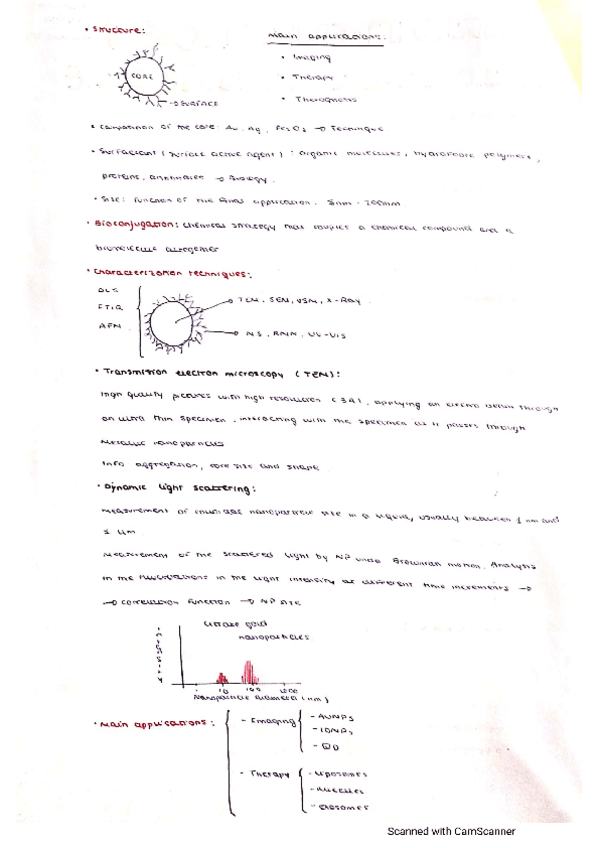 • Structure:
Main applications:
CORE
→ SURFACE
• Imaging
• Therapy
• Theragnosis
• Composition of the core: Au, Ag, Fe2O3 → Technique
• Surfactant (surface active agent): organic molecules, hydrophobic polymers,
proteins, antibodies → Biology.
• Size: function of the final application. 5nm - 200nm
• Bioconjugation: chemical strategy that couples a chemical compound and a
biomolecule altogether
• Characterization techniques:
DLS
FTIR
AFM
TEM, SEM, VSM, X-Ray
MS, RMN, UV-VIS
• Transmission electron microscopy (TEM):
High quality pictures with high resolution applying an electro beam through
an ultra thin specimen, interacting with the specimen as it passes through
Metallic nanoparticles
Info aggregation, core size and shape
• Dynamic light scattering:
Measurement of nanoparticle size in a liquid, usually between 1 nm and
5 μm
Measurement of the scattered light by NP under Brownian motion. Analysis
in the fluctuations in the light intensity at different time increments →
→ correlation function → NP size
Intensity
Citrate gold
nanoparticles
1 10 100 1000
Nanoparticle diameter (nm)
• Main applications:
- Imaging
- AuNPs
- IONPs
- QD
- Therapy
- Liposomes
- Micelles
- Exosomes
Scanned with CamScanner